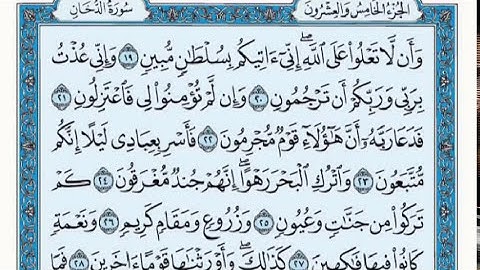 الجزء الخامس والعشرون
سورة الدخان
وَأَن لَّا تَعْلُوا۟ عَلَى ٱللَّهِ ۖ إِنِّىٓ ءَاتِيكُم بِسُلْطَٰنٍ مُّبِينٍ ١٩ وَإِنِّى عُذْتُ
بِرَبِّى وَرَبِّكُمْ أَن تَرْجُمُونِ ٢٠ وَإِن لَّمْ تُؤْمِنُوا۟ لِى فَٱعْتَزِلُونِ ٢١
فَدَعَا رَبَّهُۥٓ أَنَّ هَٰٓؤُلَآءِ قَوْمٌ مُّجْرِمُونَ ٢٢ فَأَسْرِ بِعِبَادِى لَيْلًا إِنَّكُم
مُّتَّبَعُونَ ٢٣ وَٱتْرُكِ ٱلْبَحْرَ رَهْوًا ۖ إِنَّهُمْ جُندٌ مُّغْرَقُونَ ٢٤ كَمْ
تَرَكُوا۟ مِن جَنَّٰتٍ وَعُيُونٍ ٢٥ وَزُرُوعٍ وَمَقَامٍ كَرِيمٍ ٢٦ وَنَعْمَةٍ
كَانُوا۟ فِيهَا فَٰكِهِينَ ٢٧ كَذَٰلِكَ ۖ وَأَوْرَثْنَٰهَا قَوْمًا ءَاخَرِينَ ٢٨ فَمَا